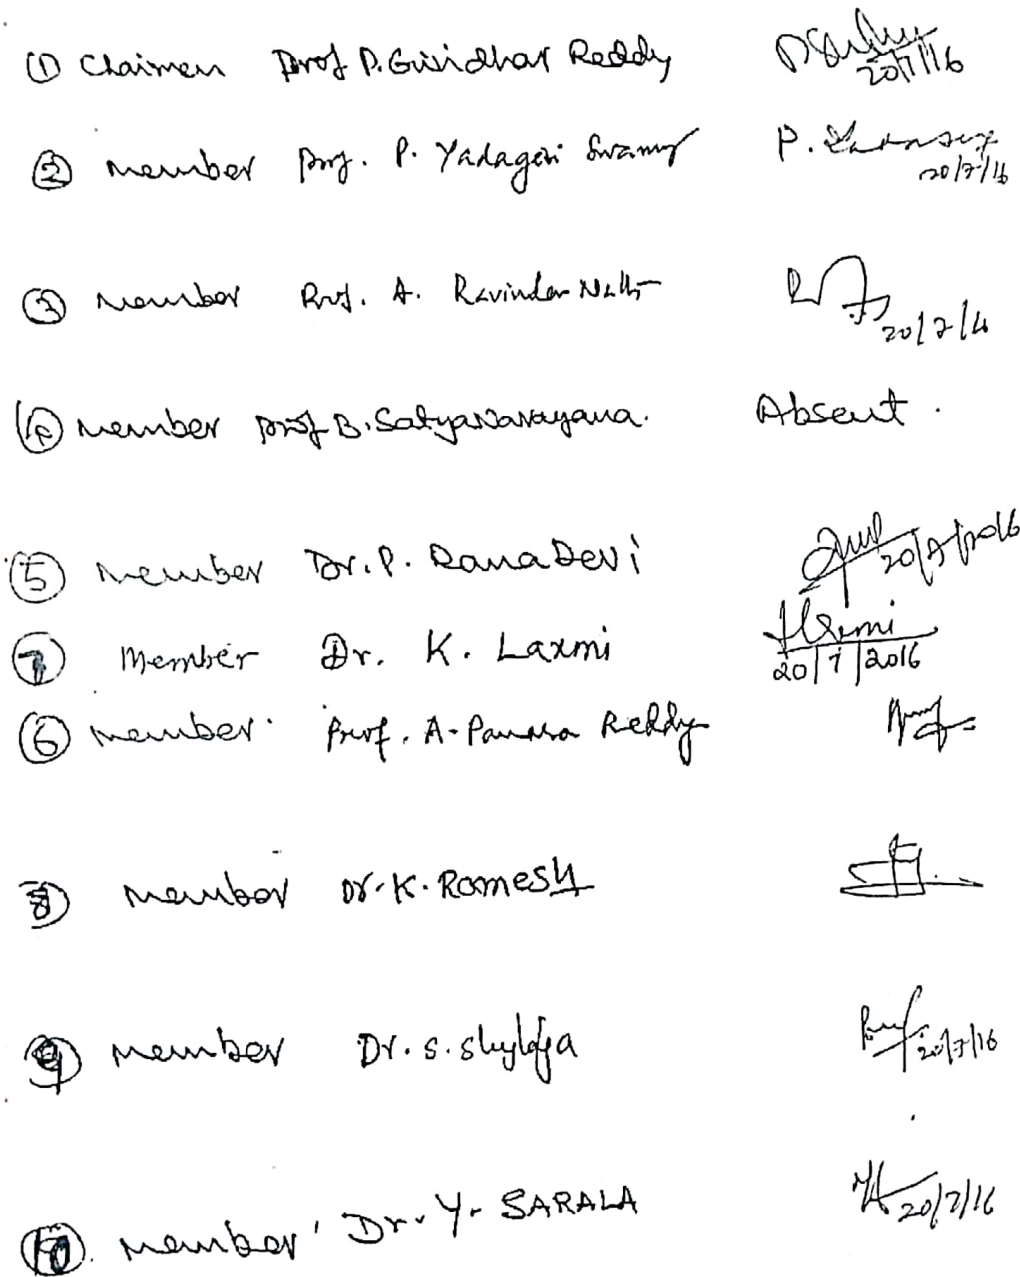 (1) Chairman Prof P. Giridhar Reddy 20/7/16
(2) member Prof. P. Yadagiri Swamy P. 20/7/16
(3) member Prof. A. Ravinder Nath 20/7/16
(4) member Prof B. Satyanarayana. Absent.
(5) member Dr. P. Rama Devi 20/7/2016
(7) Member Dr. K. Laxmi 20/7/2016
(6) member Prof. A. Reddy
(8) member Dr. K. Ramesh
(9) member Dr. S. Shylaja 20/7/16
(10) member Dr. Y. SARALA 20/7/16